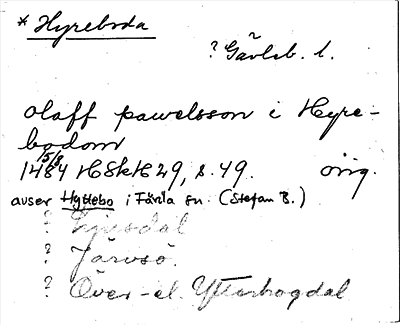 * Hyreboda
? Gävleb. l.
olaff pawelsson i Hyre-
bodom
15/8
1484 HSkH 29, s. 49. orig.
avser Hyttebo i Färila sn. (Stefan B.)
? Ljusdal
? Järvsö.
? Över- el. Ytterhogdal